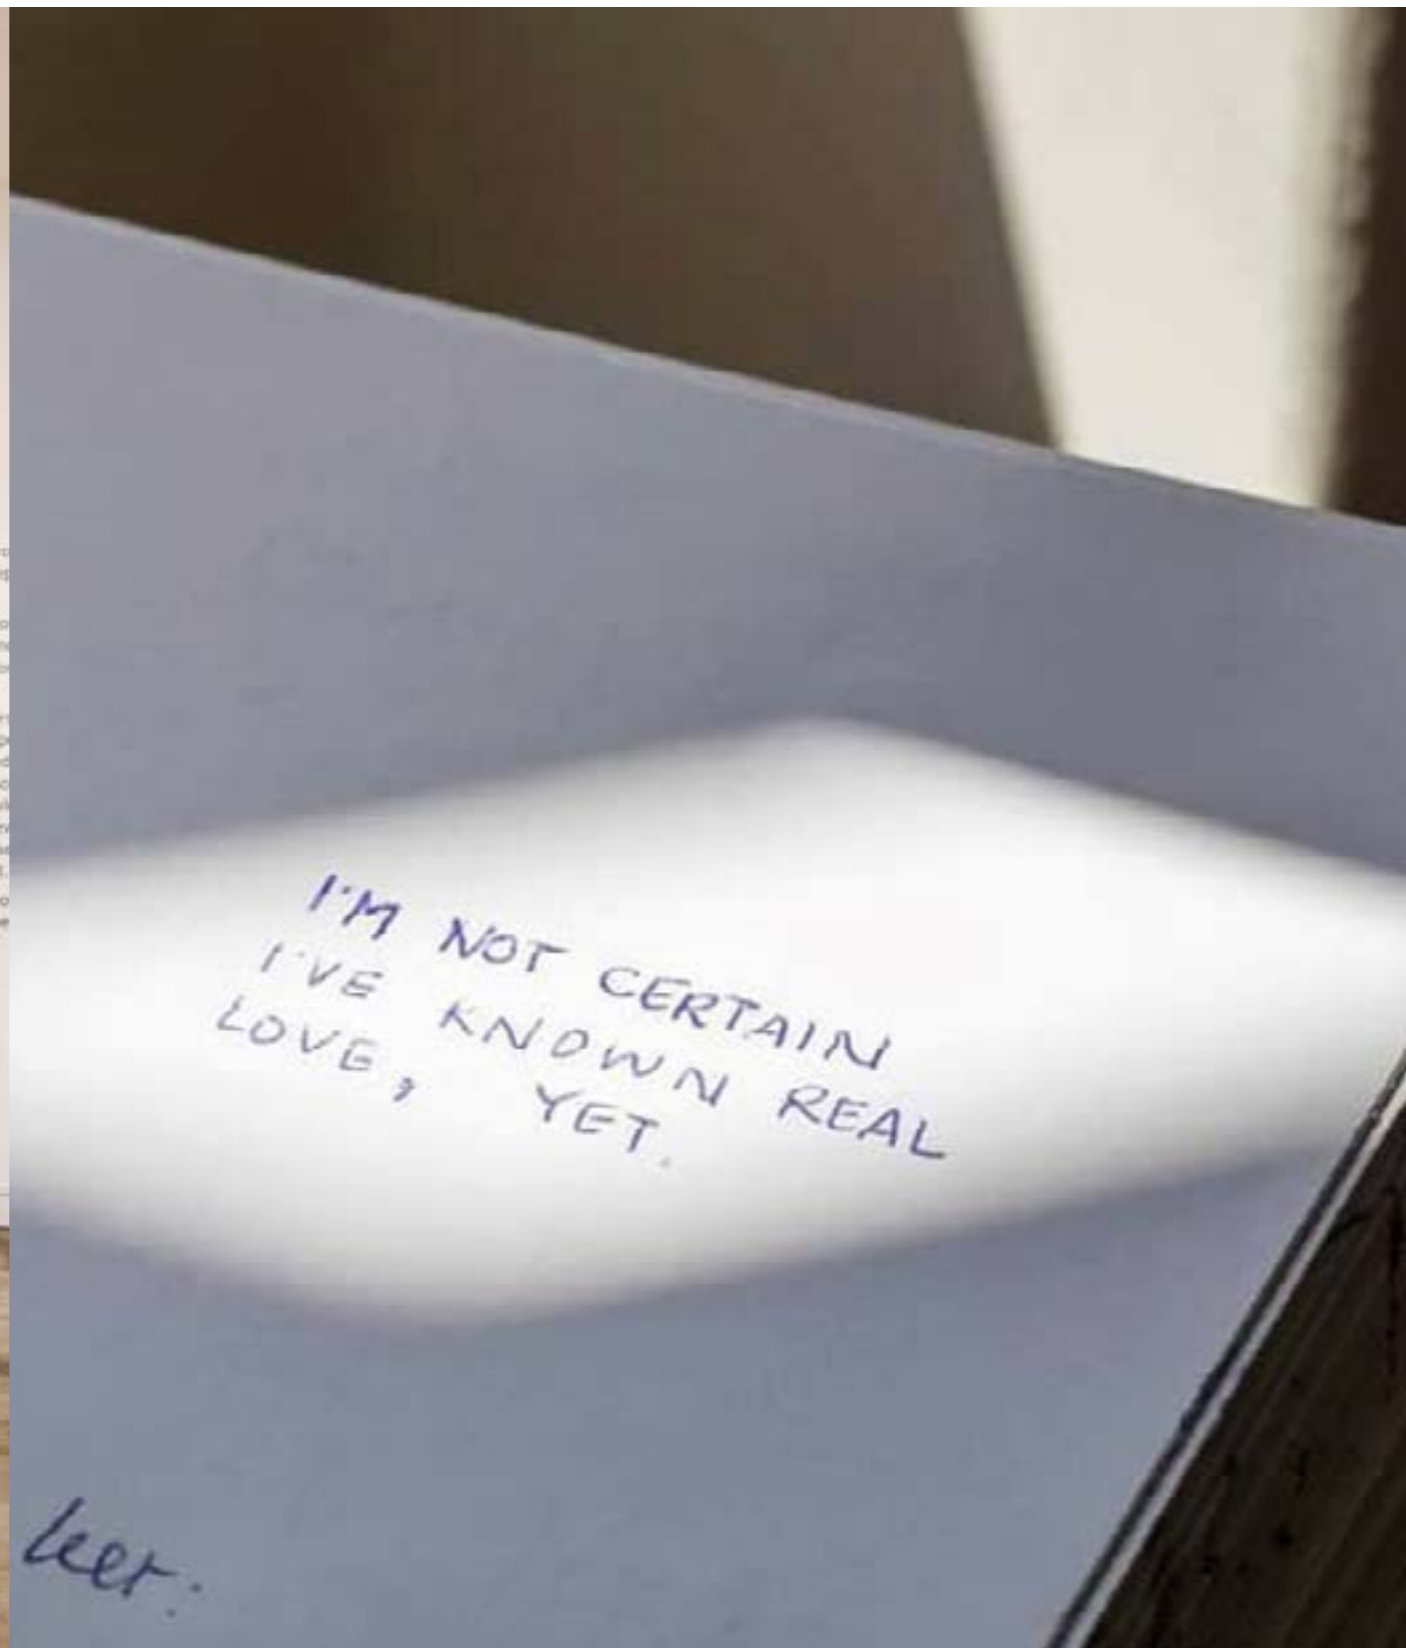 I'M NOT CERTAIN
I'VE KNOWN REAL
LOVE, YET.